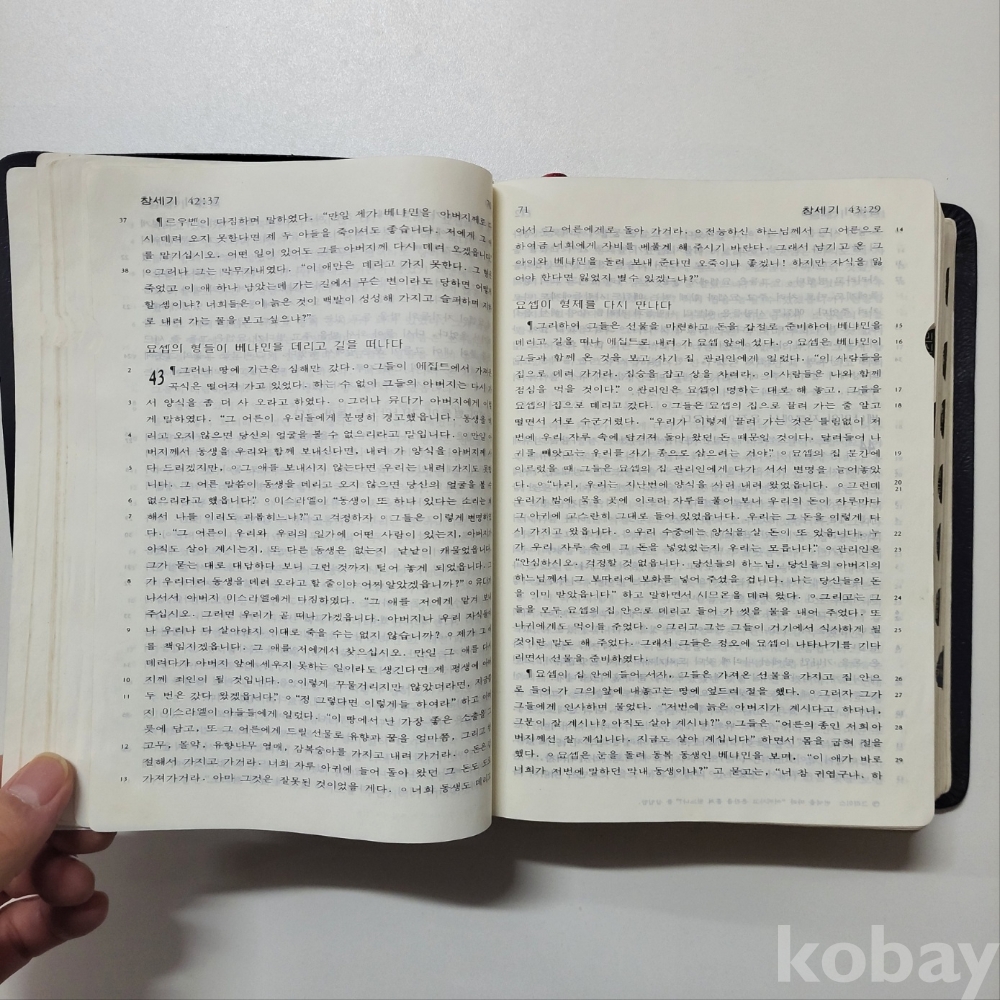 창세기 42:37
37 ¶르우벤이 다짐하며 말하였다. "만일 제가 베냐민을 아버지께로
시 데려 오지 못한다면 제 두 아들을 죽이셔도 좋습니다. 저에게 그
를 맡기십시오. 어떤 일이 있어도 그를 아버지께 다시 데려 오겠읍니다
38 ○그러나 그는 막무가내였다. "이 애만은 데리고 가지 못한다. 그
죽었고 이 애 하나 남았는데 가는 길에서 무슨 변이라도 당하면 어떻
할 셈이냐? 너희들은 이 늙은 것이 백발이 성성해 가지고 슬퍼하며
로 내려 가는 꼴을 보고 싶으냐?"
요셉의 형들이 베냐민을 데리고 길을 떠나다
43 ¶그러나 땅에 기근은 심해만 갔다. 2 ○그들이 에집트에서 가져
곡식은 떨어져 가고 있었다. 하는 수 없이 그들의 아버지는 다시
3 서 양식을 좀 더 사 오라고 하였다. ○그러나 유다가 아버지에게 이
게 말하였다. "그 어른이 우리들에게 분명히 경고했읍니다. 동생을
4 리고 오지 않으면 당신의 얼굴을 볼 수 없으리라고 말입니다. ○만일
버지께서 동생을 우리와 함께 보내신다면, 내려 가 양식을 아버지께
5 다 드리겠지만, ○그 애를 보내시지 않는다면 우리는 내려 가지도 못
니다. 그 어른 말씀이 동생을 데리고 오지 않으면 당신의 얼굴을 볼
6 없으리라고 했읍니다." ○이스라엘이 "동생이 또 하나 있다는 소리는
7 해서 나를 이리도 괴롭히느냐?"고 걱정하자 ○그들은 이렇게 변명하
다. "그 어른이 우리와 우리의 일가에 어떤 사람이 있는지, 아버지
아직도 살아 계시는지, 또 다른 동생은 없는지 낱낱이 캐물었읍니다
그가 묻는 대로 대답하다 보니 그런 것까지 털어 놓게 되었읍니다. 그
8 가 우리더러 동생을 데려 오라고 할 줄이야 어찌 알았겠읍니까?" ○유다
나서서 아버지 이스라엘에게 다짐하였다. "그 애를 저에게 맡겨 보내
주십시오. 그러면 우리가 곧 떠나 가겠읍니다. 아버지나 우리 자식들
9 나 우리나 다 살아야지 이대로 죽을 수는 없지 않습니까? ○제가 그
를 책임지겠읍니다. 그 애를 저에게서 찾으십시오. 만일 그 애를 다시
데려다가 아버지 앞에 세우지 못하는 일이라도 생긴다면 제 평생에 아버
10 지께 죄인이 될 것입니다. ○이렇게 꾸물거리지만 않았더라면, 지금
11 두 번은 갔다 왔겠읍니다." ○"정 그렇다면 이렇게들 하여라" 하고 아버
지 이스라엘이 아들들에게 일렀다. "이 땅에서 난 가장 좋은 소출을 그
릇에 담고, 또 그 어른에게 드릴 선물로 유향과 꿀을 얼마쯤, 그리고
12 고무, 몰약, 유향나무 열매, 감복숭아를 가지고 내려 가거라. ○돈은
절해서 가지고 가거라. 너희 자루 아귀에 들어 돌아 왔던 그 돈도 도로
13 가져가거라. 아마 그것은 잘못된 것이었을 게다. ○너희 동생도 데리
71 창세기 43:29
14 어서 그 어른에게로 돌아 가거라. ○전능하신 하느님께서 그 어른으로
하여금 너희에게 자비를 베풀게 해 주시기 바란다. 그래서 남기고 온 그
아이와 베냐민을 돌려 보내 준다면 오죽이나 좋겠니! 하지만 자식을 잃
어야 한다면 잃었지 별수 있겠느냐?"
요셉이 형제를 다시 만나다
15 ¶그리하여 그들은 선물을 마련하고 돈을 갑절로 준비하여 베냐민을
16 데리고 길을 떠나 에집트로 내려 가 요셉 앞에 섰다. ○요셉은 베냐민이
그들과 함께 온 것을 보고 자기 집 관리인에게 일렀다. "이 사람들을
집으로 데려 가거라. 짐승을 잡고 상을 차려라. 이 사람들은 나와 함께
17 점심을 먹을 것이다." ○관리인은 요셉이 명하는 대로 해 놓고, 그들을
18 요셉의 집으로 데리고 갔다. ○그들은 요셉의 집으로 끌려 가는 줄 알고
떨면서 서로 수군거렸다. "우리가 이렇게 끌려 가는 것은 틀림없이 저
번에 우리 자루 속에 담겨져 돌아 왔던 돈 때문일 것이다. 달려들어 나
19 귀를 빼앗고는 우리를 자기 종으로 삼으려는 거야." ○요셉의 집 문간에
이르렀을 때 그들은 요셉의 집 관리인에게 다가 서서 변명을 늘어놓았
20 21 다. ○"나리, 우리는 지난번에 양식을 사러 내려 왔었읍니다. ○그런데
우리가 밤에 묵을 곳에 이르러 자루를 풀어 보니 우리의 돈이 자루마다
그 아귀에 고스란히 그대로 들어 있었읍니다. 우리는 그 돈을 이렇게 다
22 시 가지고 왔읍니다. ○우리 수중에는 양식을 살 돈이 또 있읍니다. 누
23 가 우리 자루 속에 그 돈을 넣었었는지 우리는 모릅니다." ○관리인은
"안심하시오. 걱정할 것 없읍니다. 당신들의 하느님, 당신들의 아버지의
하느님께서 그 보따리에 보화를 넣어 주셨을 겁니다. 나는 당신들의 돈
24 을 이미 받았읍니다" 하고 말하면서 시므온을 데려 왔다. ○그리고는 그
들을 모두 요셉의 집 안으로 데리고 들어 가 씻을 물을 내어 주었다. 또
25 나귀에게도 먹이를 주었다. ○그리고 그는 그들이 거기에서 식사하게 될
것이란 말도 해 주었다. 그래서 그들은 정오에 요셉이 나타나기를 기다
리면서 선물을 준비하였다.
26 ¶요셉이 집 안에 들어 서자, 그들은 가져온 선물을 가지고 집 안으
27 로 들어 가 그의 앞에 내놓고는 땅에 엎드려 절을 했다. ○그러자 그가
그들에게 인사하며 물었다. "저번에 늙은 아버지가 계시다고 하더니,
28 그분이 잘 계시냐? 아직도 살아 계시냐?" ○그들은 "어른의 종인 저희 아
버지께선 잘 계십니다. 지금도 살아 계십니다" 하면서 몸을 굽혀 절을
29 했다. ○요셉은 눈을 돌려 동복 동생인 베냐민을 보며, "이 애가 바로
너희가 저번에 말하던 막내 동생이냐?"고 묻고는, "너 참 귀엽구나. 하
kobay